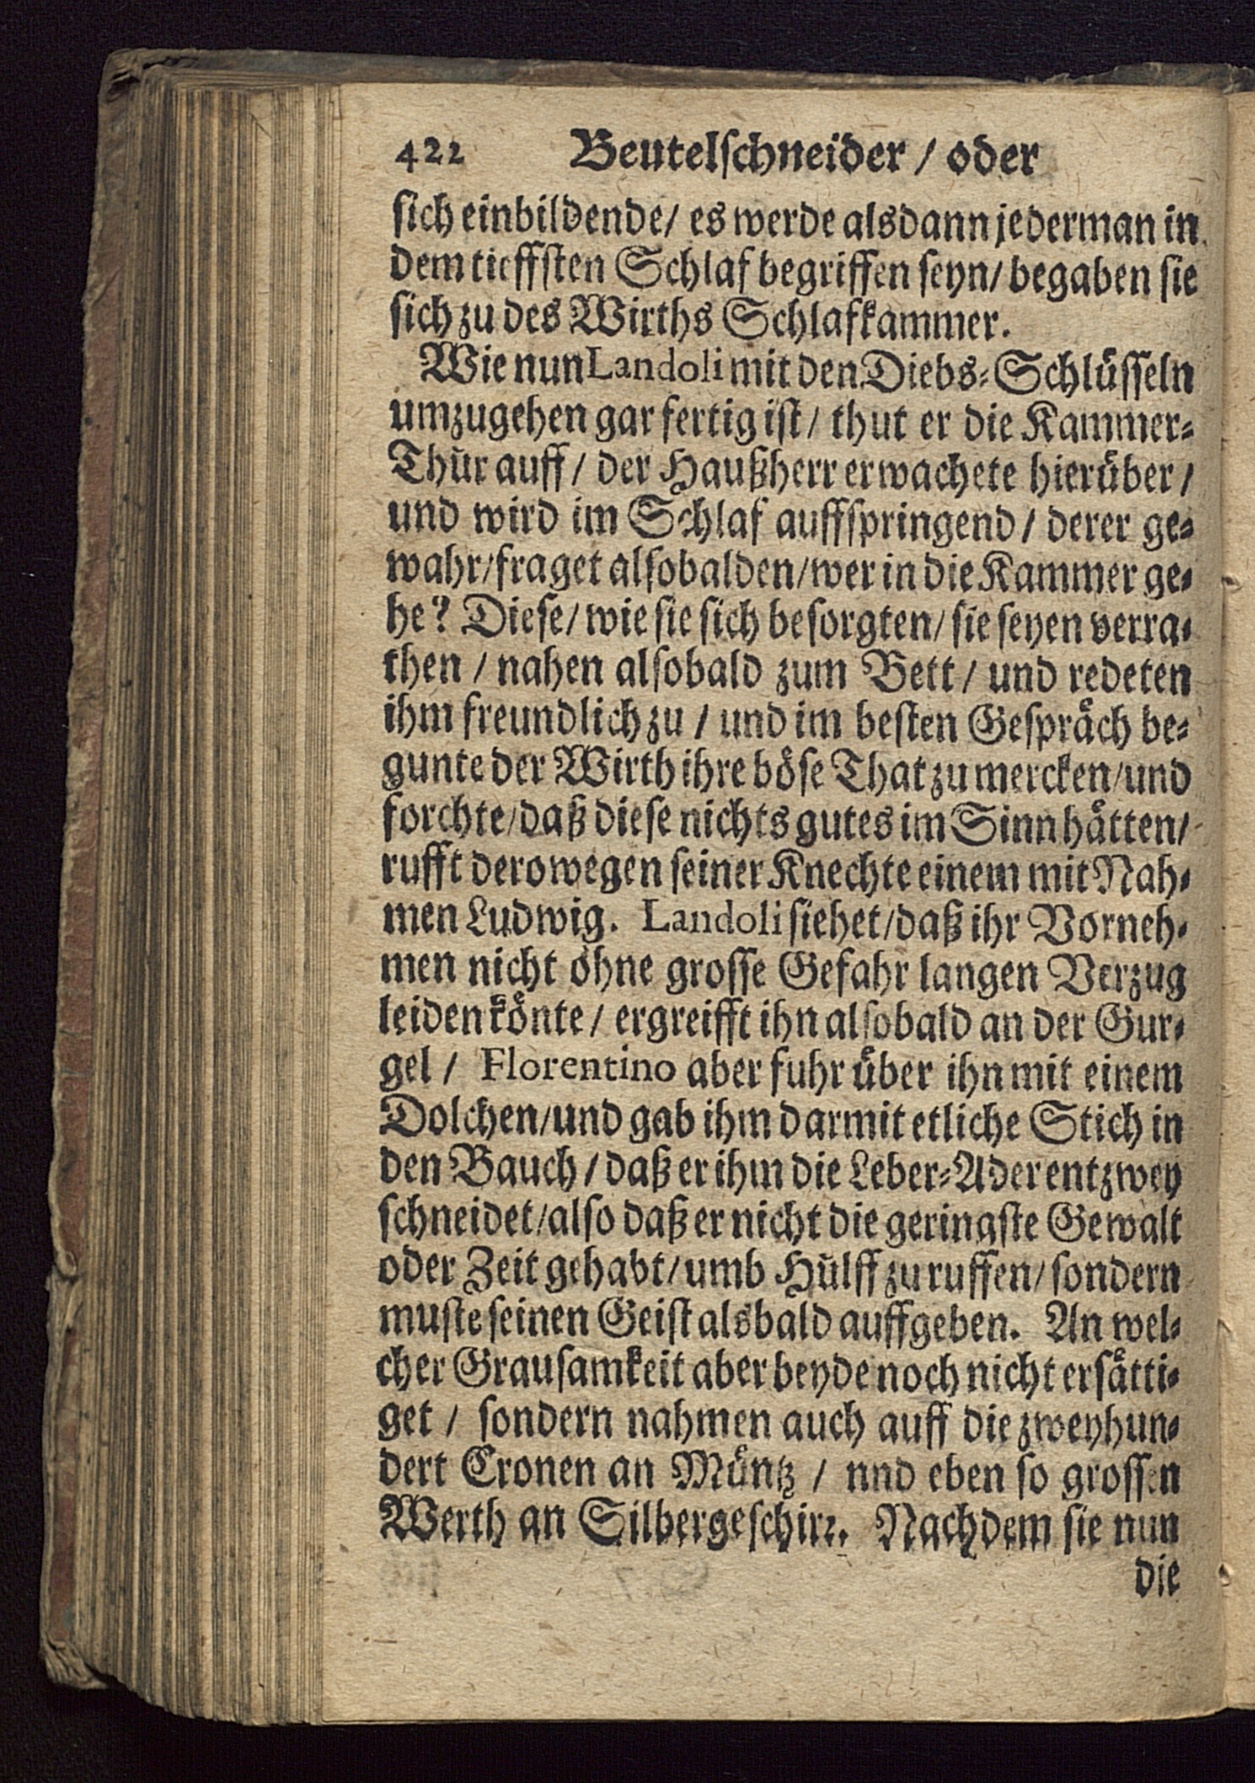 422 Beutelschneider / oder
sich einbildende / es werde alsdann jederman in
dem tieffsten Schlaf begriffen seyn / begaben sie
sich zu des Wirths Schlafkammer.
Wie nun Landoli mit den Diebs-Schlüsseln
umzugehen gar fertig ist / thut er die Kammer-
Thür auff / der Haußherr erwachete hierüber /
und wird im Schlaf auffspringend / derer ge-
wahr / fraget alsobalden / wer in die Kammer ge-
he? Diese / wie sie sich besorgten / sie seyen verra-
then / nahen alsobald zum Bett / und redeten
ihm freundlich zu / und im besten Gespräch be-
gunte der Wirth ihre böse That zu mercken / und
forchte / daß diese nichts gutes im Sinn hätten /
rufft derowegen seiner Knechte einem mit Nah-
men Ludwig. Landoli siehet / daß ihr Vorneh-
men nicht ohne grosse Gefahr langen Verzug
leiden könte / ergreifft ihn alsobald an der Gur-
gel / Florentino aber fuhr über ihn mit einem
Dolchen / und gab ihm darmit etliche Stich in
den Bauch / daß er ihm die Leber-Ader entzwey
schneidet / also daß er nicht die geringste Gewalt
oder Zeit gehabt / umb Hülff zu ruffen / sondern
muste seinen Geist alsbald auffgeben. An wel-
cher Grausamkeit aber beyde noch nicht ersätti-
get / sondern nahmen auch auff die zweyhun-
dert Cronen an Müntz / nnd eben so grossen
Werth an Silbergeschirr. Nachdem sie nun
die